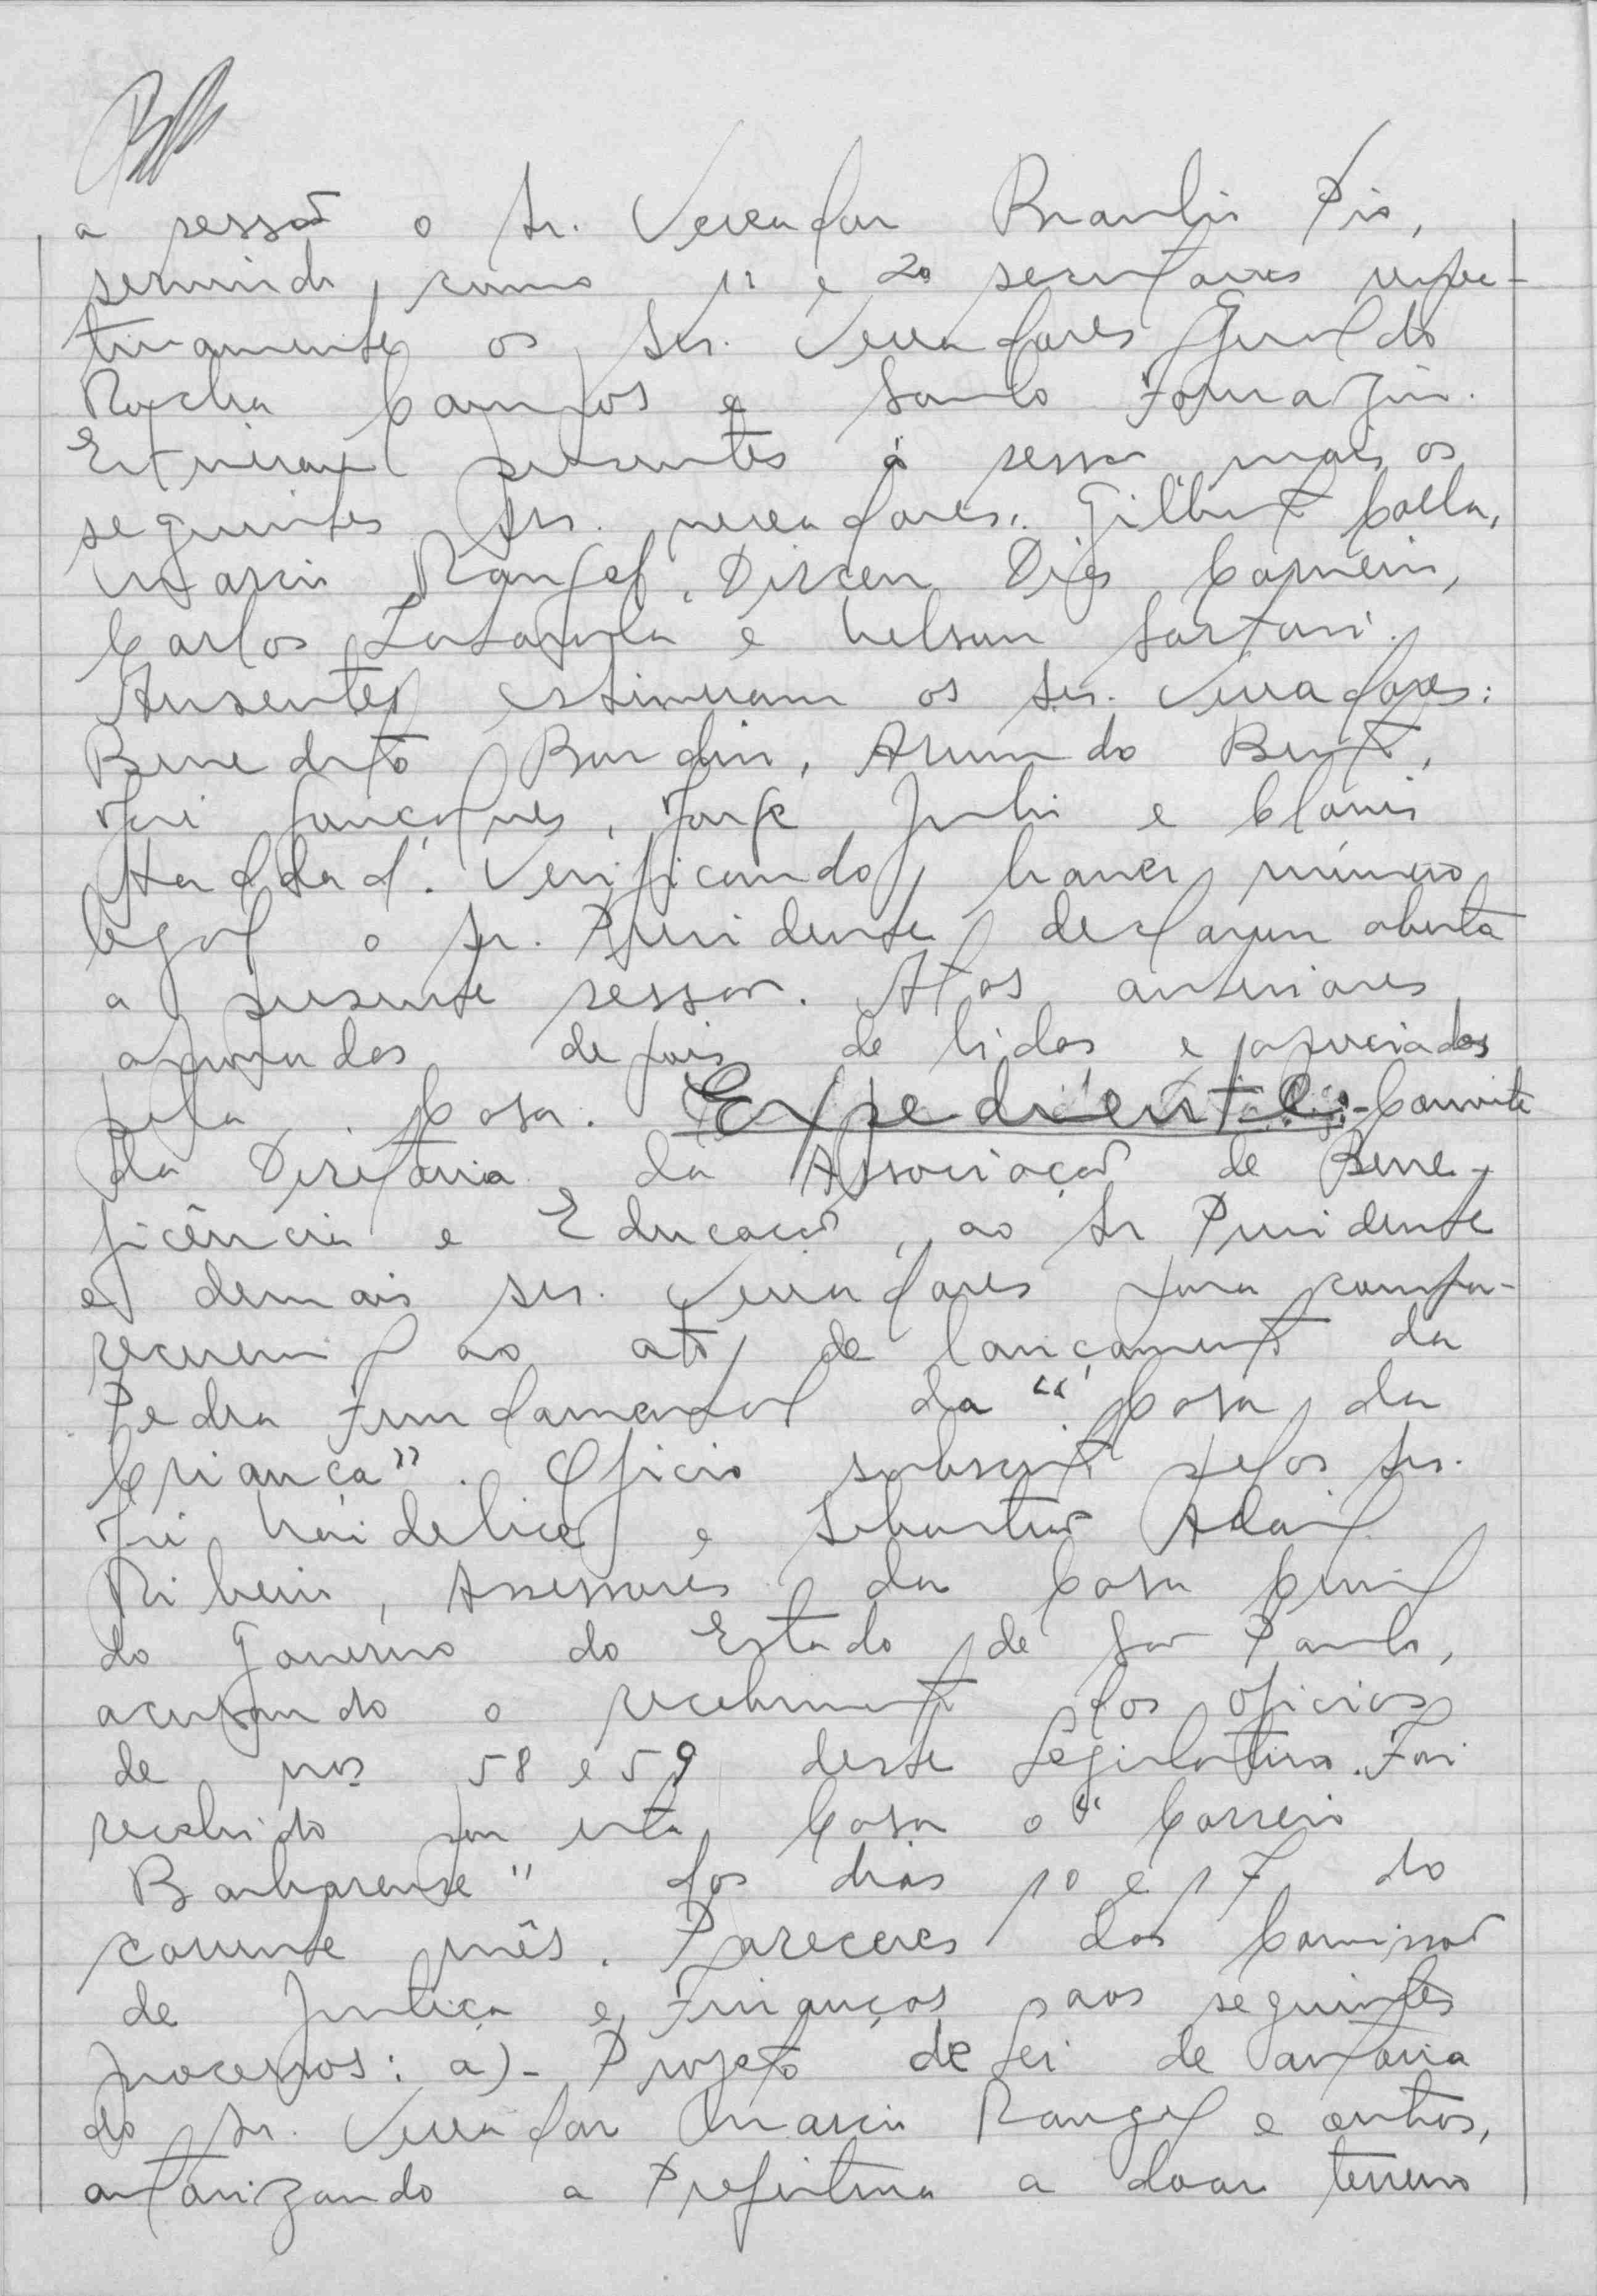 a sessão o Sr. Vereador Braulio Pio,
servindo como 1º e 2º secretarios respec-
tivamente os Srs. Vereadores Geraldo
Rocha Campos e Santo Fornazin.
Estiveram presentes à sessão mais os
seguintes Srs. vereadores: Gilberto Colla,
Marcio Rangel, Dirceu Dias Carneiro,
Carlos e Nelson Sartori.
Ausentes estiveram os Srs. Vereadores:
Benedito Armando Bento,
José Jorge Julio e Clovis
Haddad. Verificando haver número
legal o Sr. Presidente declarou aberta
a presente sessão. Atas anteriores
aprovadas depois de lidas e apreciadas
pela Casa. Expediente:- Convite
da Diretoria da Associação de Bene-
ficência e Educação, ao Sr Presidente
e demais Srs. Vereadores para compa-
recerem ao ato de lançamento da
Pedra Fundamental da "Casa da
Criança". Oficio subscrito pelos Srs.
José e Sebastião Adail
Ribeiro, Assessores da Casa Civil
do Governo do Estado de São Paulo,
acusando o recebimento dos oficios
de nos 58 e 59 deste Legislativo. Foi
recebido por esta Casa o "Correio
Barbarense" dos dias 10 e 17 do
corrente mês. Pareceres das Comissão
de Justiça e Finanças aos seguintes
processos: a)- Projeto de Lei de autoria
do Sr. Vereador Marcio Rangel e outros,
autorizando a Prefeitura a doar terreno